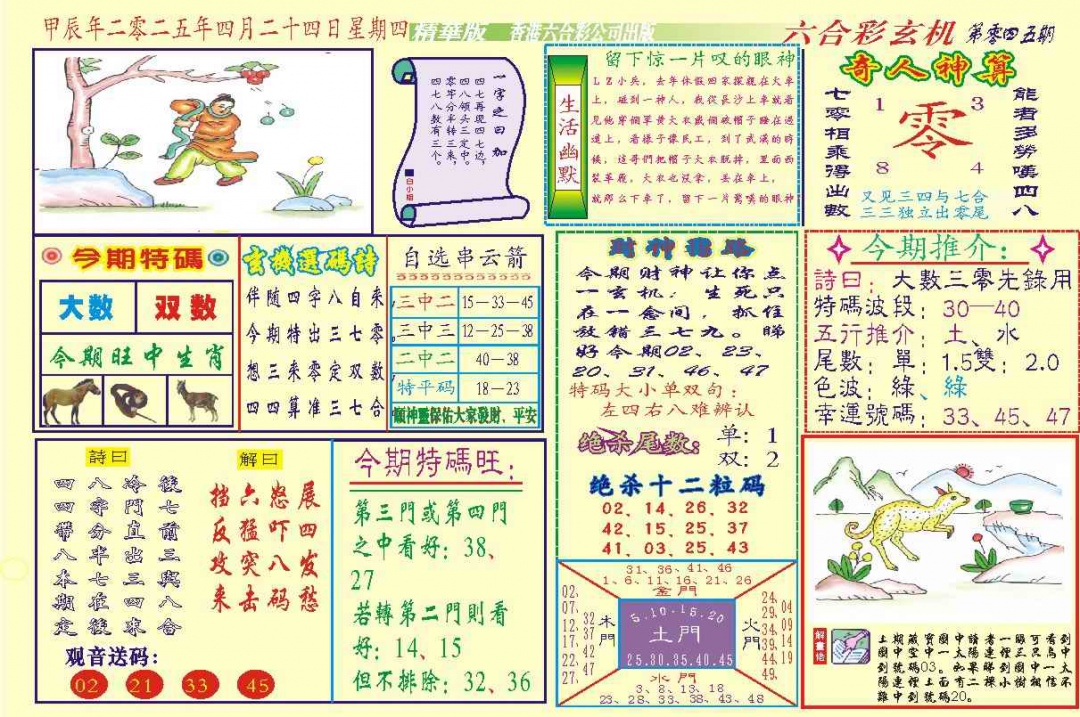 甲辰年二零二五年四月二十四日星期四
精華版
香港六合彩公司出版
六合彩玄机
第零四五期
一字之曰加
四七再现四七边,
四八领头三定中。
零字分半转三来,
四七八数有三个。
白小姐
生活幽默
留下惊一片叹的眼神
LZ小兵，去年休假回家探親在火車
上，碰到一神人，我從長沙上車就看
见他穿個軍黄大衣戴個破帽子睡在過
道上，看樣子像民工，到了武漢的時
候，這哥們把帽子大衣脱掉，里面西
装革履，大衣也没拿，丢在車上，
就那么下車了，留下一片驚嘆的眼神
奇人神算
七零相乘得出數
1
3
零
8
4
能者多勞嘆四八
又见三四与七合
三三独立出零尾
今期特碼
大数
双数
今期旺中生肖
玄機選碼詩
伴随四字八自来
今期特出三七零
想三来零定双数
四四算准三七合
自选串云箭
三中二 15—33—45
三中三 12—25—38
二中二 40—38
特平码 18—23
願神靈保佑大家發財、平安
財神
今期财神让你点
一玄机： 生死只
在一念间，抓住
放错三七九。睇
好今期02、23、
20、31、46、47
特码大小单双句：
左四右八难辨认
绝杀尾数:
单: 1
双: 2
绝杀十二粒码
02、14、26、32
42、15、25、37
41、03、25、43
今期推介:
詩曰: 大數三零先錄用
特碼波段: 30—40
五行推介: 土、水
尾數: 單: 1.5雙: 2.0
色波: 綠、綠
幸運號碼: 33、45、47
詩曰
四八冷後
四字門七
帶分直前
八半出三
本七三與
期在四八
定後來合
解曰
挡六怒展
反猛吓四
攻突八发
来击码愁
观音送码：
02 21 33 45
今期特碼旺:
第三門或第四門
之中看好: 38、
27
若轉第二門則看
好: 14、15
但不排除: 32、36
31、36、41、46
1、6、11、16、21、26
金門
02、
07、
12、
17、
22、
27、
32
37
42
47
木門
5.10.15.20
土門
25.30.35.40.45
火門
24、
29、
34、
39、
44、
49、
04
09
14
19
水門
3、8、13、18
23、28、33、38、43、48
解畫佬
上期藏寶圖中請者一眼可看到
圖中空中一太陽連樫三只鳥中
到號碼03。如果睇到圖中一太
陽連樫上面有二棵小樹相信不
難中到號碼20。